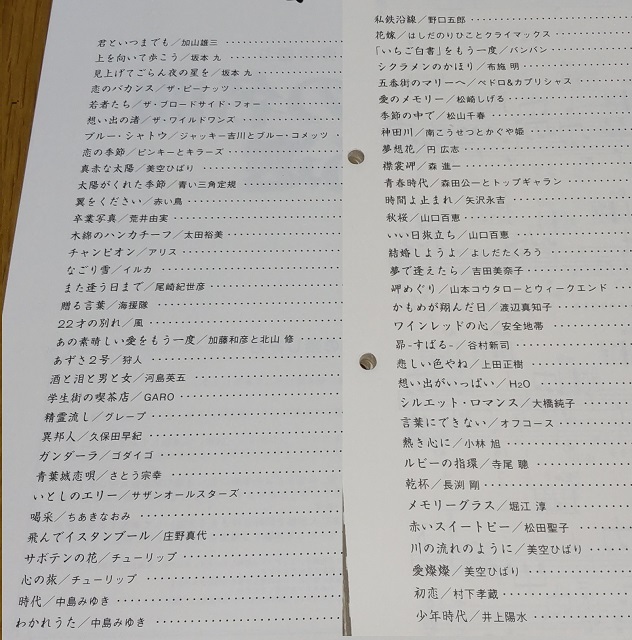 君といつまでも／加山雄三
上を向いて歩こう／坂本 九
見上げてごらん夜の星を／坂本 九
恋のバカンス／ザ・ピーナッツ
若者たち／ザ・ブロードサイド・フォー
想い出の渚／ザ・ワイルドワンズ
ブルー・シャトウ／ジャッキー吉川とブルー・コメッツ
恋の季節／ピンキーとキラーズ
真赤な太陽／美空ひばり
太陽がくれた季節／青い三角定規
翼をください／赤い鳥
卒業写真／荒井由実
木綿のハンカチーフ／太田裕美
チャンピオン／アリス
なごり雪／イルカ
また逢う日まで／尾崎紀世彦
贈る言葉／海援隊
22才の別れ／風
あの素晴しい愛をもう一度／加藤和彦と北山 修
あずさ2号／狩人
酒と泪と男と女／河島英五
学生街の喫茶店／GARO
精霊流し／グレープ
異邦人／久保田早紀
ガンダーラ／ゴダイゴ
青葉城恋唄／さとう宗幸
いとしのエリー／サザンオールスターズ
喝采／ちあきなおみ
飛んでイスタンブール／庄野真代
サボテンの花／チューリップ
心の旅／チューリップ
時代／中島みゆき
わかれうた／中島みゆき
私鉄沿線／野口五郎
花嫁／はしだのりひことクライマックス
「いちご白書」をもう一度／バンバン
シクラメンのかほり／布施 明
五番街のマリーへ／ペドロ&カプリシャス
愛のメモリー／松崎しげる
季節の中で／松山千春
神田川／南こうせつとかぐや姫
夢想花／円 広志
襟裳岬／森 進一
青春時代／森田公一とトップギャラン
時間よ止まれ／矢沢永吉
秋桜／山口百恵
いい日旅立ち／山口百恵
結婚しようよ／よしだたくろう
夢で逢えたら／吉田美奈子
岬めぐり／山本コウタローとウィークエンド
かもめが翔んだ日／渡辺真知子
ワインレッドの心／安全地帯
昴-すばる-／谷村新司
悲しい色やね／上田正樹
想い出がいっぱい／H₂O
シルエット・ロマンス／大橋純子
言葉にできない／オフコース
熱き心に／小林 旭
ルビーの指環／寺尾 聰
乾杯／長渕 剛
メモリーグラス／堀江 淳
赤いスイートピー／松田聖子
川の流れのように／美空ひばり
愛燦燦／美空ひばり
初恋／村下孝蔵
少年時代／井上陽水